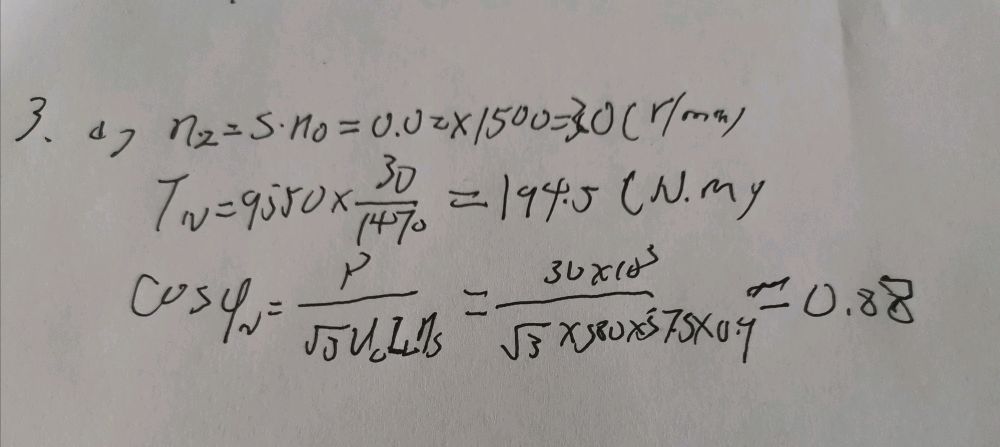 3. a, n₂=S·n₀=0.02×1500=30(r/min)
T_N=9550×30/1470=194.5(N.m)
cosφ_N=P/√3U_LI_Lη_s=30×10³/√3×380×57.5×0.9≈0.88